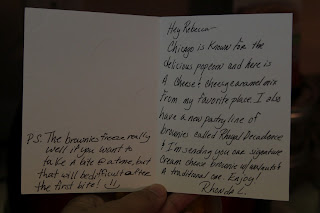 Hey Rebecca
Chicago is known for the
delicious popcorn and here is
a cheese + cheesy caramel mix
from my favorite place. I also
have a new pastry line of
brownies called Khaya' Decadance
& I'm sending you one signature
cream cheese brownie w/walnuts &
a traditional one. Enjoy!
Rhonda L.
P.S. The brownies freeze really
well if you want to
take a bite @ a time, but
that will be difficult after
the first bite!